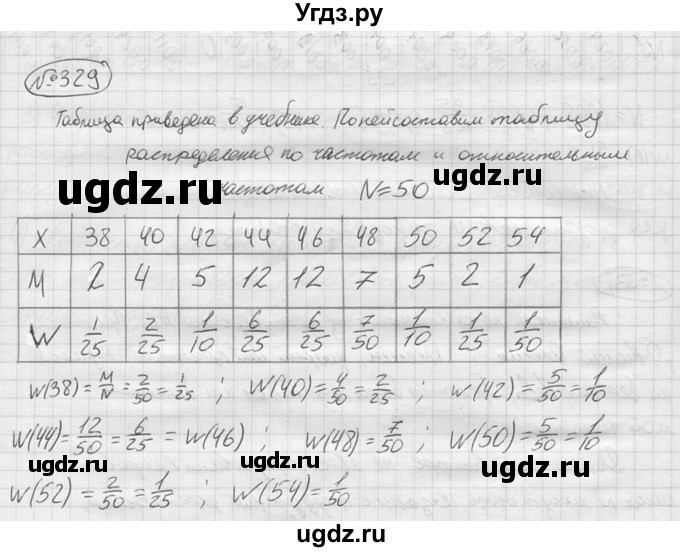 Угдз.ру
№329
Таблица приведена в учебнике. По ней составим таблицу
распределения по частотам и относительным
частотам. N=50
ugdz.ru ugdz.ru
X 38 40 42 44 46 48 50 52 54
M 2 4 5 12 12 7 5 2 1
W 1/25 2/25 1/10 6/25 6/25 7/50 1/10 1/25 1/50
W(38) = M/N = 2/50 = 1/25 ; W(40) = 4/50 = 2/25 ; W(42) = 5/50 = 1/10
W(44) = 12/50 = 6/25 = W(46) ; W(48) = 7/50 ; W(50) = 5/50 = 1/10
ugdz.ru ugdz.ru
W(52) = 2/50 = 1/25 ; W(54) = 1/50
ugdz.ru
ugdz.ru